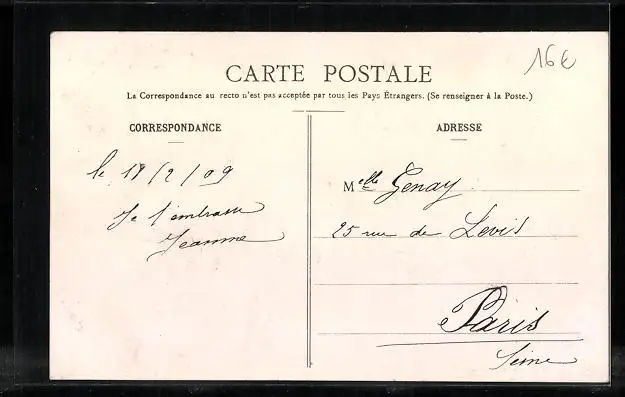 16€
CARTE POSTALE
La Correspondance au recto n'est pas acceptée par tous les Pays Étrangers. (Se renseigner à la Poste.)
CORRESPONDANCE
ADRESSE
le 18/2/09
Je t'embrasse
Jeanne
Melle Genay
25 rue de Levis
Paris
Seine